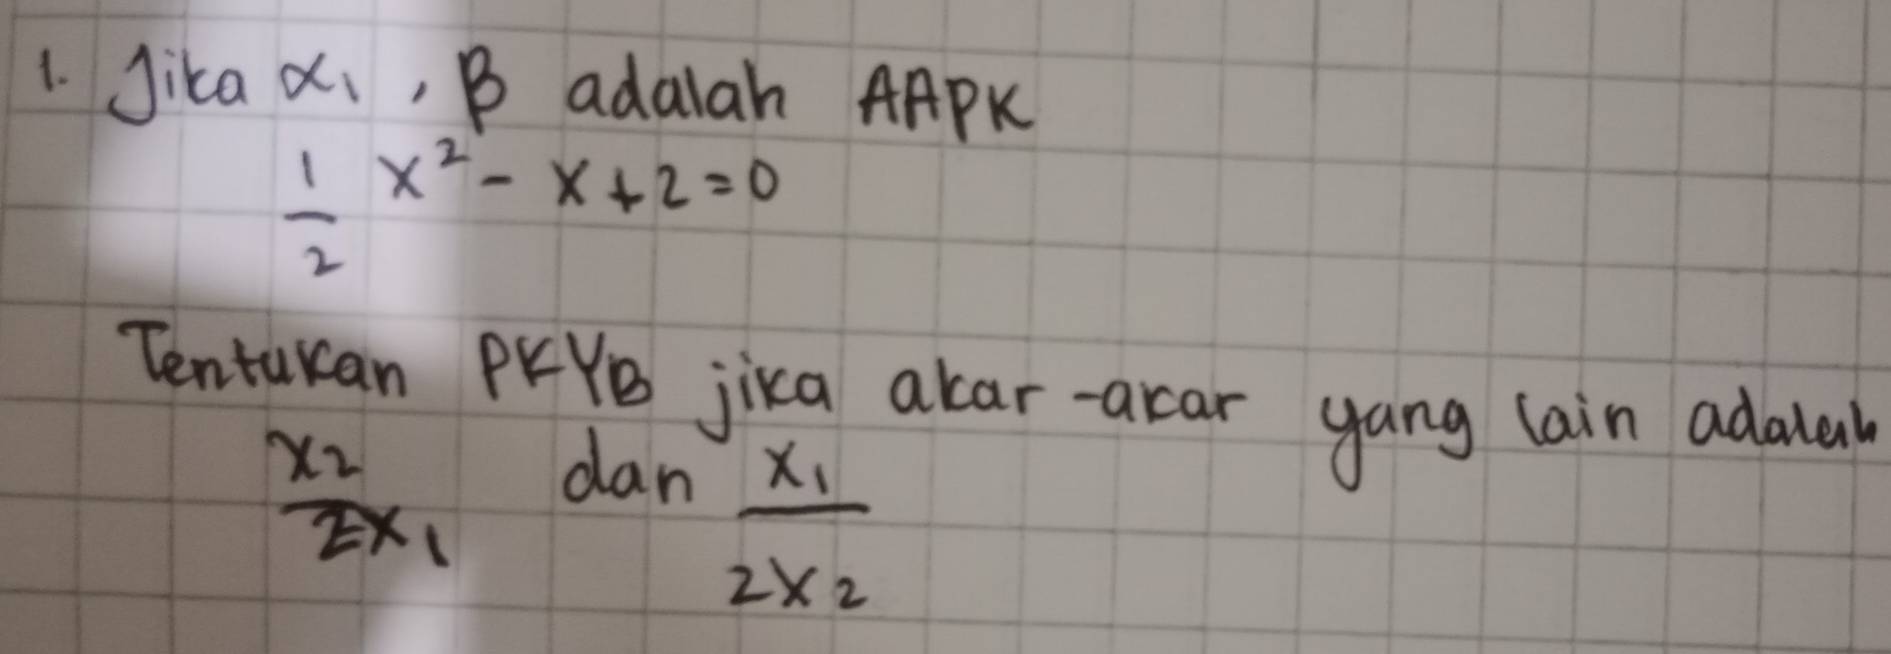 1. Jika α₁, β adalah AAPK
1/2 x² - x + 2 = 0
Tentukan PKYB jika akar-akar yang lain adalah
x₂/2x₁ dan x₁/2x₂